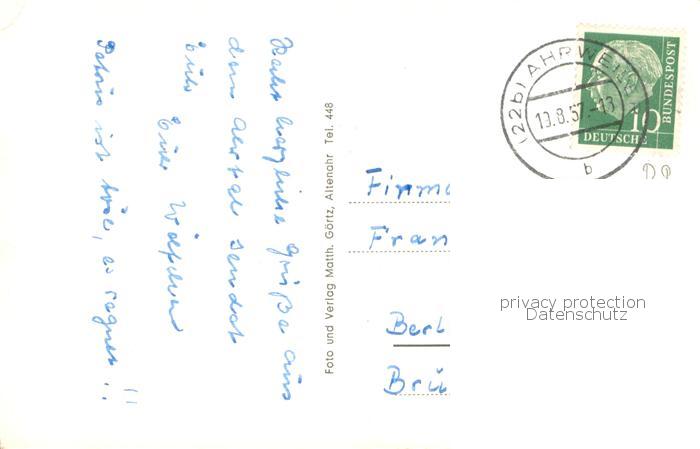 Recht herzliche Grüße aus
dem Ahrtal sendet
Euer
Petrus ist böse, es regnet !!
Foto und Verlag Matth. Görtz, Altenahr Tel. 448
(22b) AHRWEILER
13.8.57.-18
b
10
DEUTSCHE
BUNDESPOST
Firma
Fran
Berl
Brü
privacy protection
Datenschutz